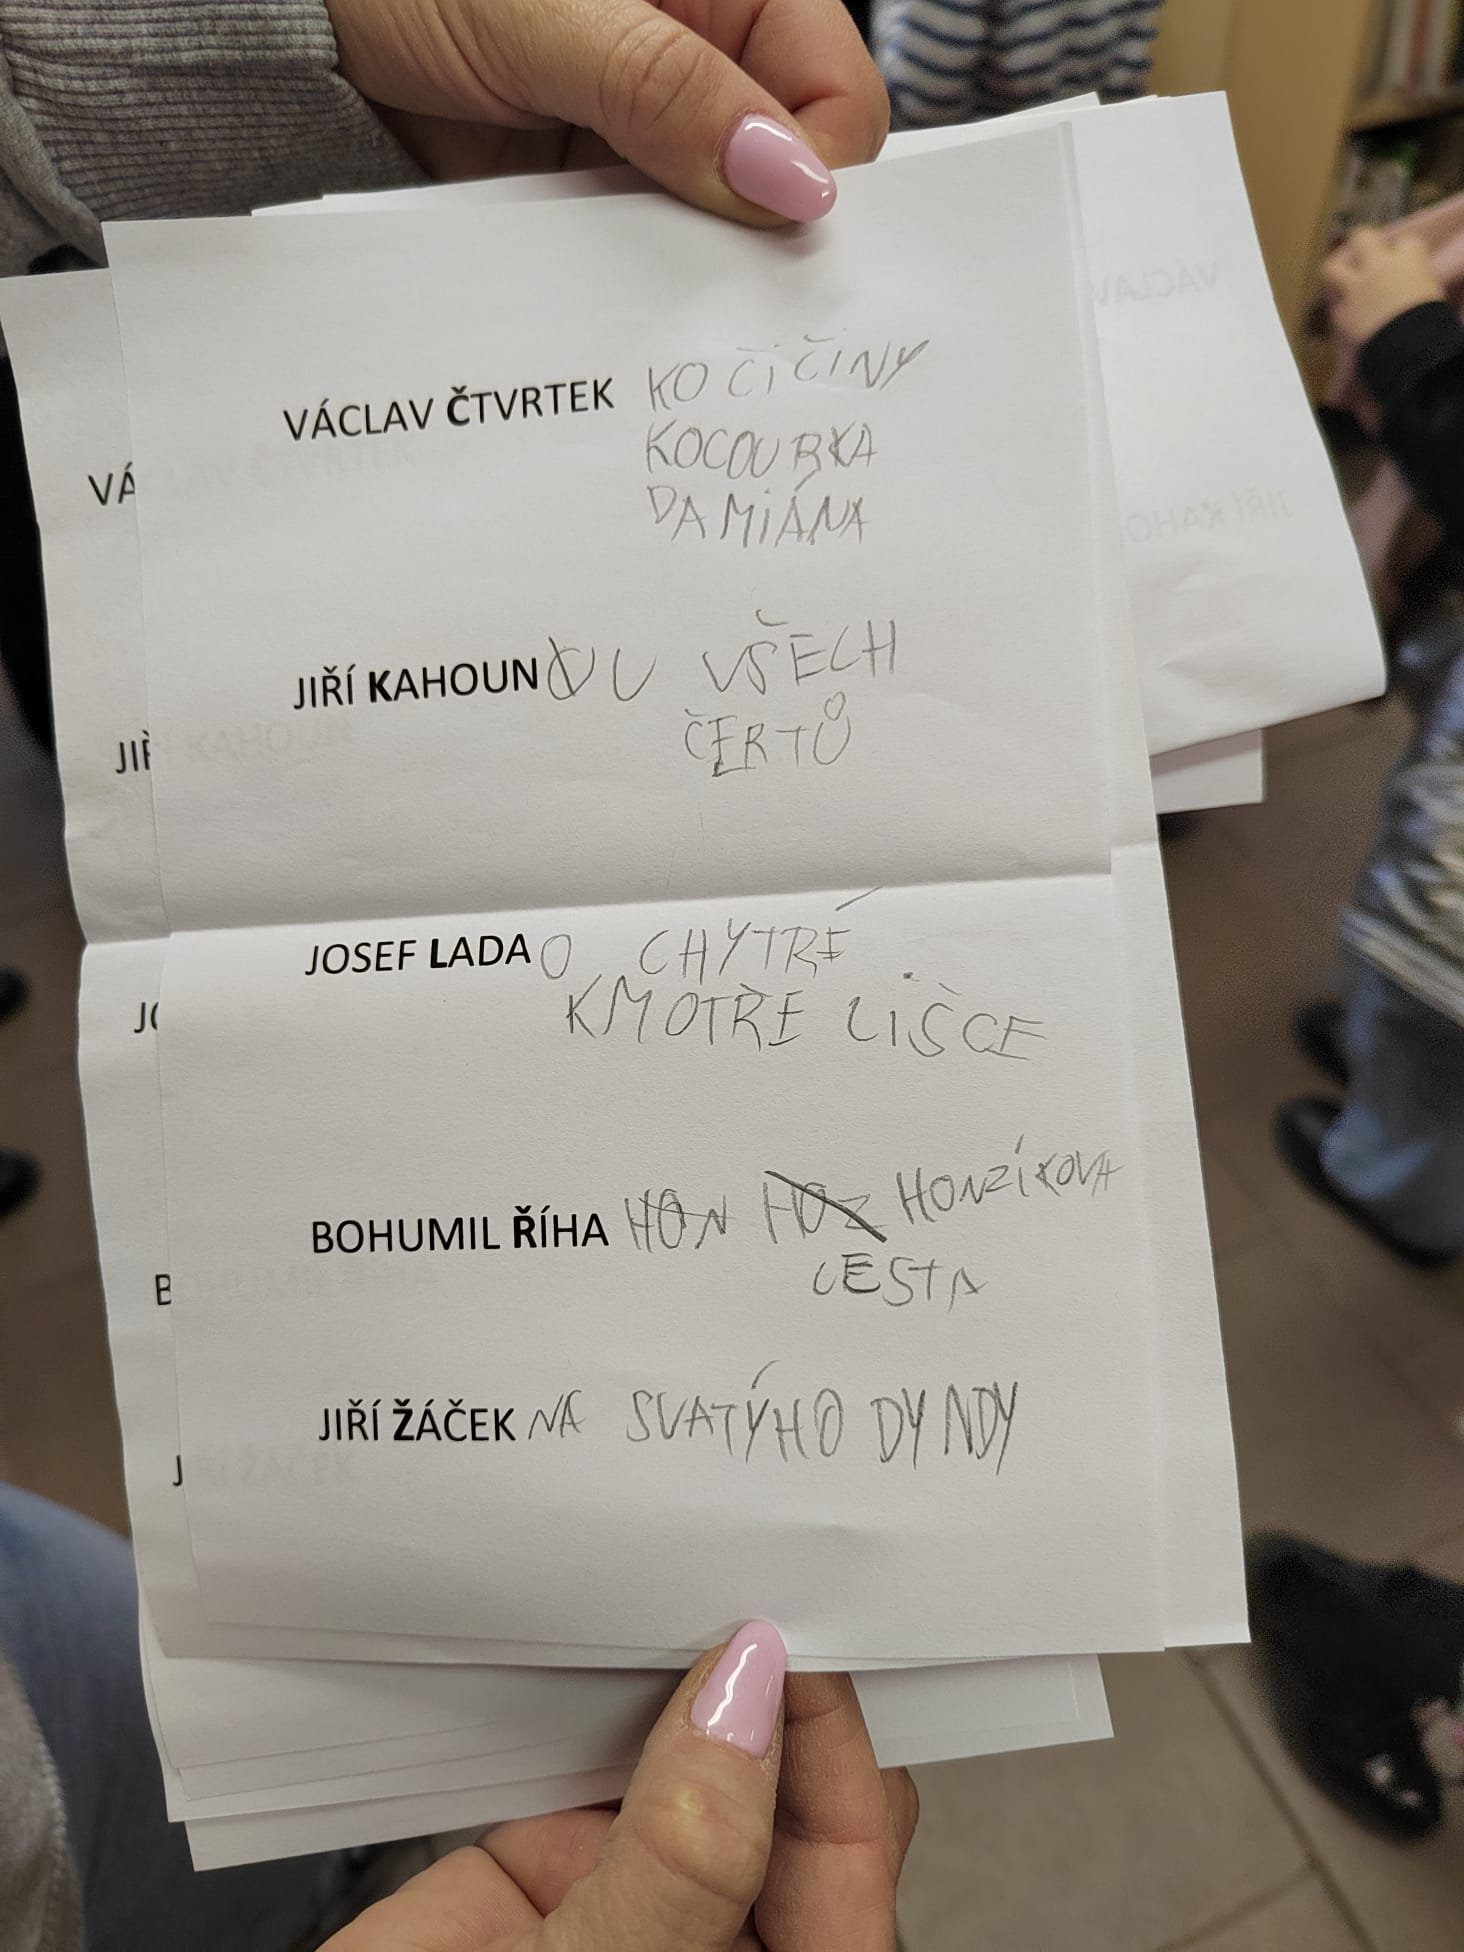 VÁCLAV ČTVRTEK KOČIČINY
KOCOURKA
DAMIÁNA
JIŘÍ KAHOUN U VŠECH
ČERTŮ
JOSEF LADA O CHYTRÉ
KMOTŘE LIŠCE
BOHUMIL ŘÍHA HON HOZ HONZÍKOVA
CESTA
JIŘÍ ŽÁČEK NA SVATÝHO DYNDY
VÁ
JIŘ
JO
B
J
VÁCLAV
JIŘÍ KAHO